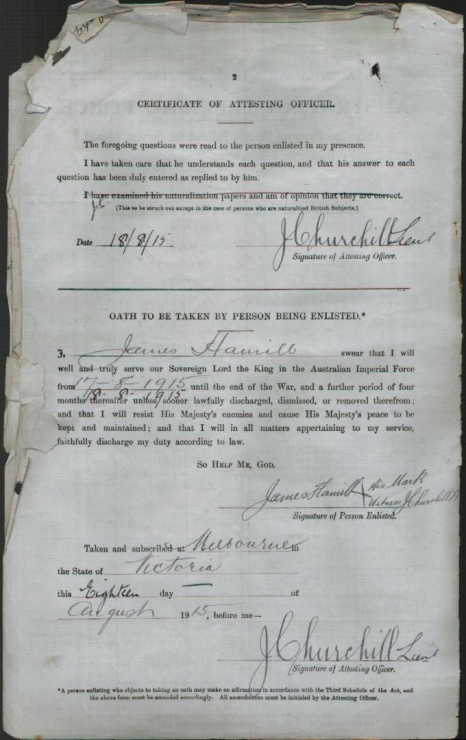 2
CERTIFICATE OF ATTESTING OFFICER.
The foregoing questions were read to the person enlisted in my presence.
I have taken care that he understands each question, and that his answer to each
question has been duly entered as replied to by him.
I have examined his naturalization papers and am of opinion that they are correct.
(This to be struck out except in the case of persons who are naturalized British Subjects.)
Date 18/8/15
J Churchill Lieut
Signature of Attesting Officer.
OATH TO BE TAKEN BY PERSON BEING ENLISTED.*
3, James Hamill swear that I will
well and truly serve our Sovereign Lord the King in the Australian Imperial Force
from 17-8-1915 until the end of the War, and a further period of four
18-8-1915
months thereafter unless sooner lawfully discharged, dismissed, or removed therefrom;
and that I will resist His Majesty's enemies and cause His Majesty's peace to be
kept and maintained; and that I will in all matters appertaining to my service,
faithfully discharge my duty according to law.
SO HELP ME, GOD.
James Hamill X His Mark
Witness J Churchill Lt
Signature of Person Enlisted.
Taken and subscribed at Melbourne in
the State of Victoria
this Eighteen day of
August 1915, before me—
J Churchill Lieut
Signature of Attesting Officer.
*A person enlisting who objects to taking an oath may make an affirmation in accordance with the Third Schedule of the Act, and
the above form must be amended accordingly. All amendments must be initialed by the Attesting Officer.